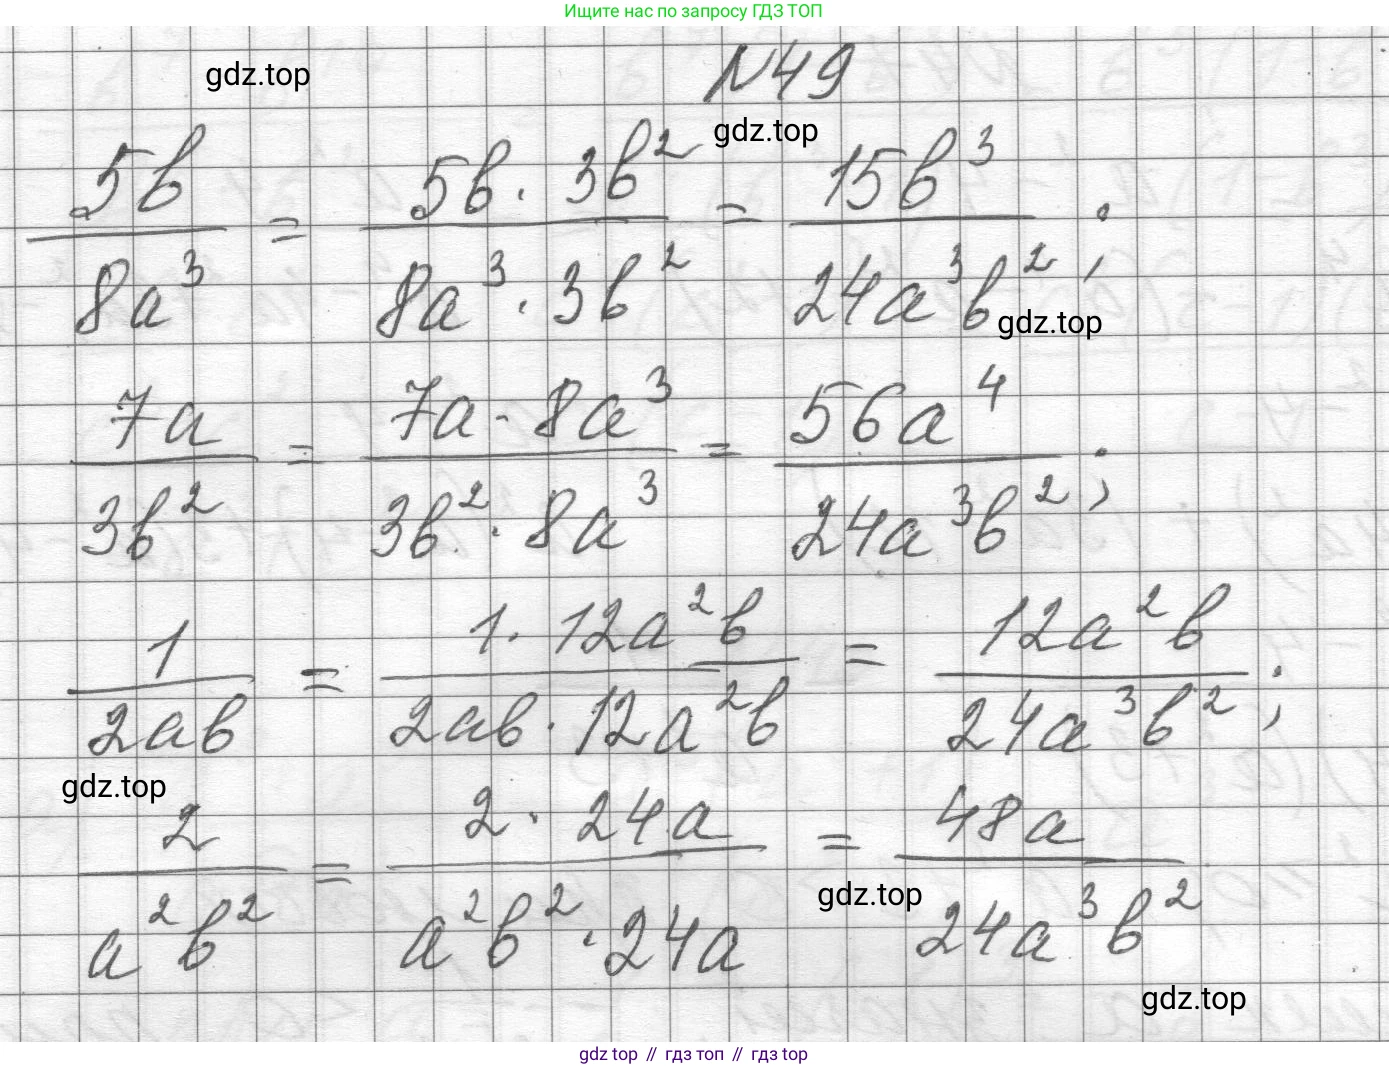 Ищите нас по запросу ГДЗ ТОП
N49
gdz.top
gdz.top
5b/8a³ = 5b · 3b²/8a³ · 3b² = 15b³/24a³b² ;
gdz.top
7a/3b² = 7a · 8a³/3b² · 8a³ = 56a⁴/24a³b² ;
1/2ab = 1 · 12a²b/2ab · 12a²b = 12a²b/24a³b² ;
gdz.top
2/a²b² = 2 · 24a/a²b² · 24a = 48a/24a³b²
gdz.top
gdz.top
gdz top // гдз топ // gdz top